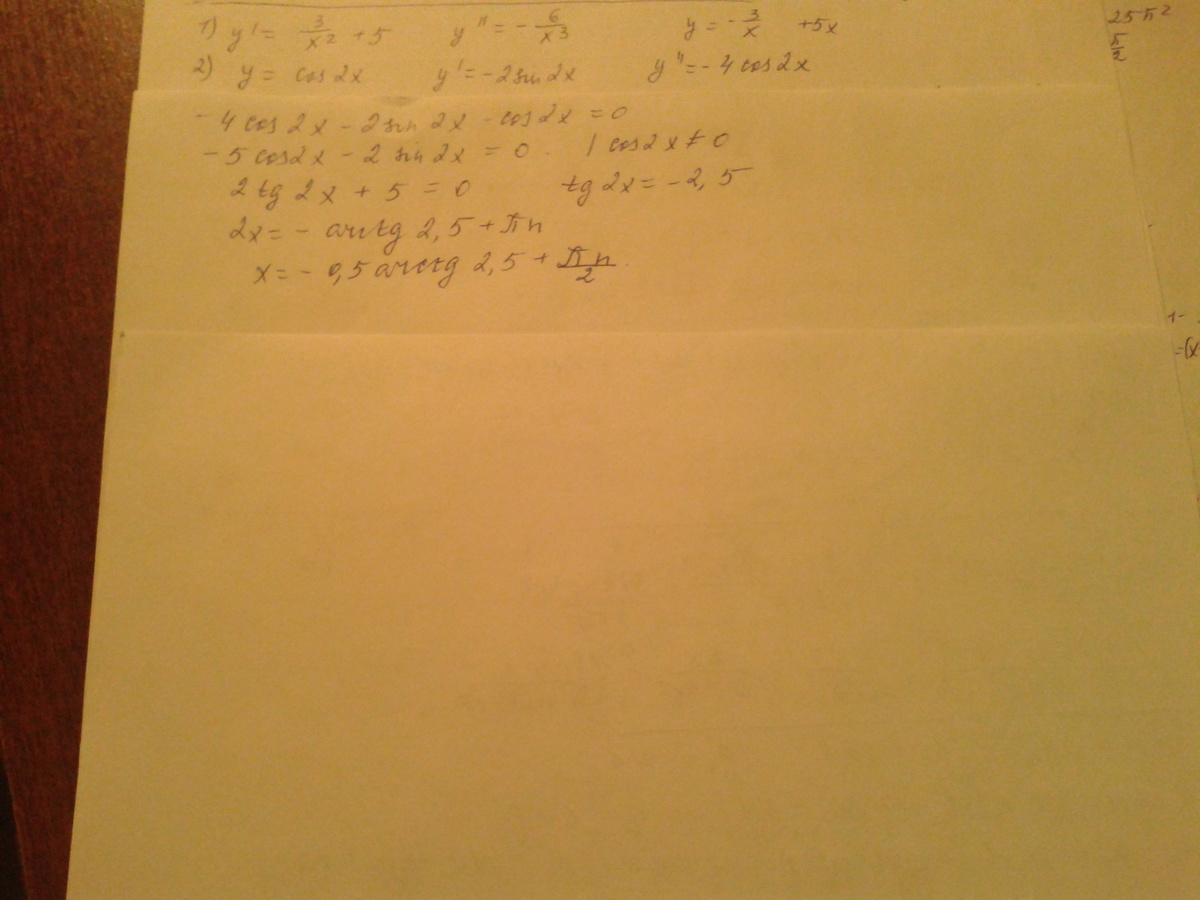 1) y' = 3/x² + 5 y'' = - 6/x³ y = - 3/x + 5x
2) y = cos 2x y' = -2 sin 2x y'' = - 4 cos 2x
- 4 cos 2x - 2 sin 2x - cos 2x = 0
- 5 cos 2x - 2 sin 2x = 0. | cos 2x ≠ 0
2 tg 2x + 5 = 0 tg 2x = - 2,5
2x = - arctg 2,5 + πn
x = - 0,5 arctg 2,5 + πn/2.
25π²
π/2
1-
=(x